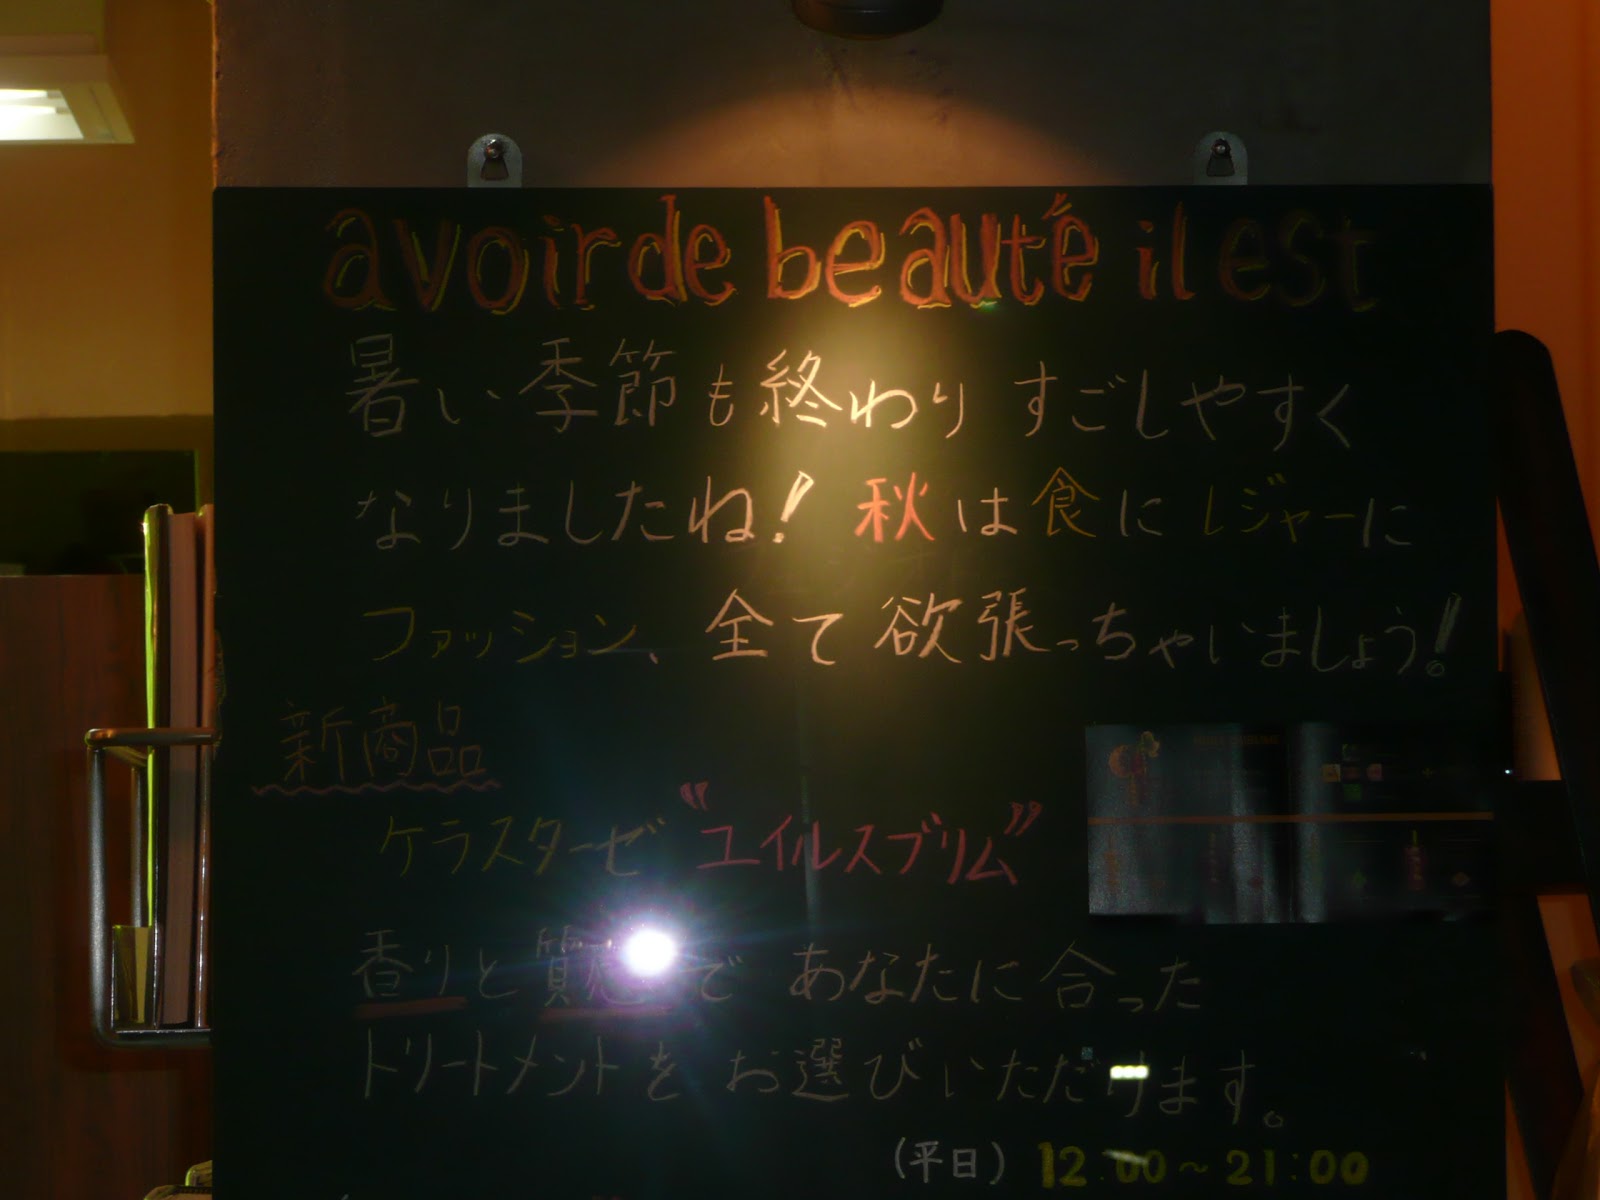 avoir de beauté il est
暑い季節も終わりすごしやすく
なりましたね！秋は食にレジャーに
ファッション、全て欲張っちゃいましょう！
新商品
ケラスターゼ"ユイルスブリム"
香りと質感であなたに合った
トリートメントをお選びいただけます。
(平日) 12:00～21:00